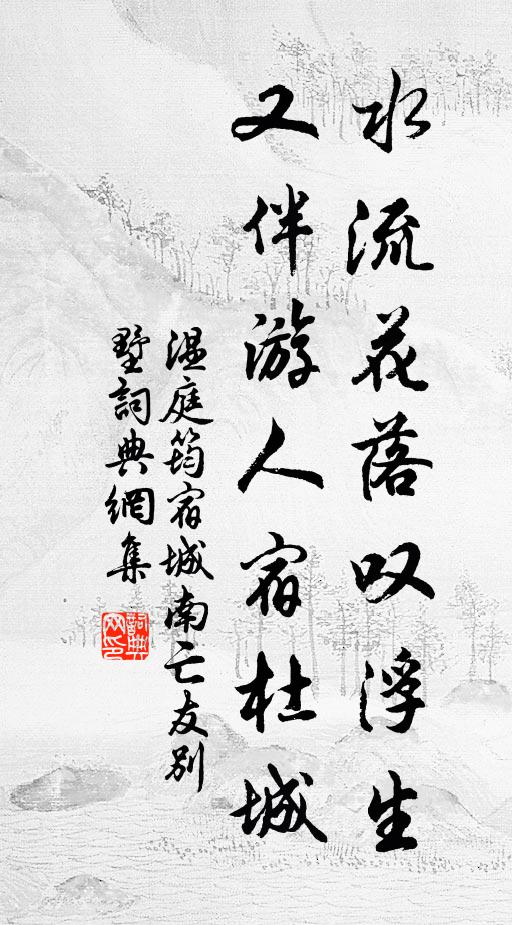 水流花落叹浮生
又伴游人宿杜城
温庭筠宿城南亡友别
墅詞典網集
詞典網印